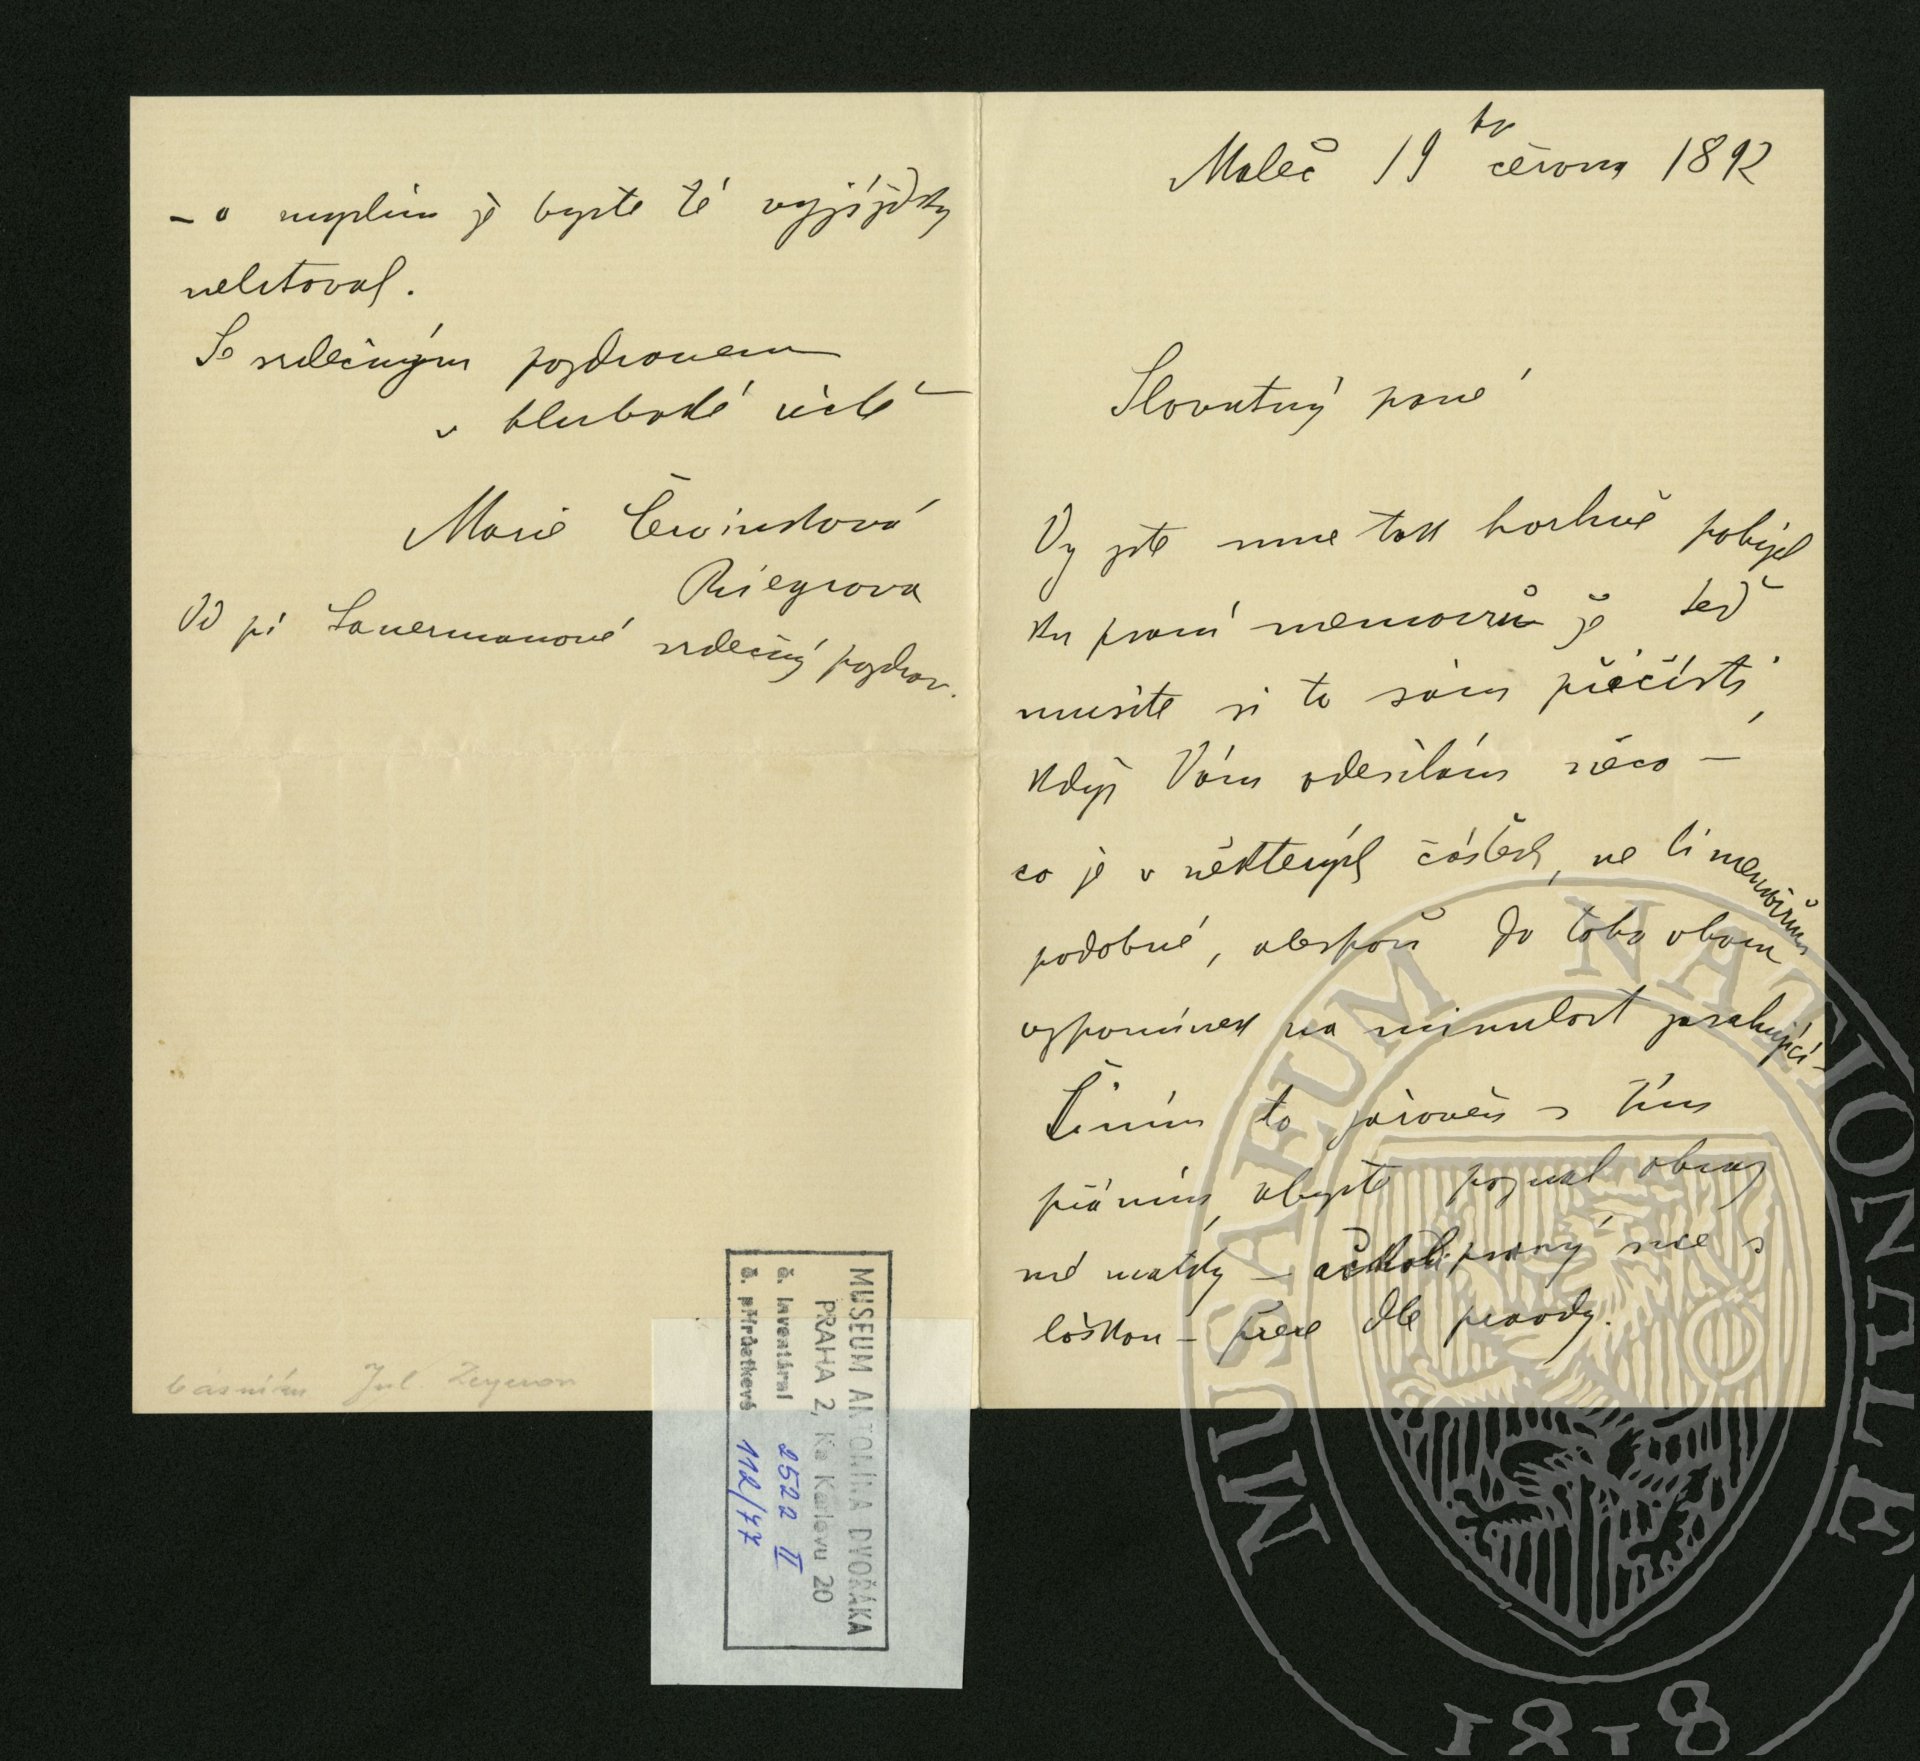 Maleč 19ho června 1892
Slovutný pane
Vy jste mne tak horlivě pobízel
ku psaní memoirů že teď
musíte si to sám přečísti,
když Vám odesílám něco –
co je v některých částech, ne li memoirům
podobné, alespoň do toho oboru
vzpomínek na minulost zasahující –
Činím to zároveň s tím
přáním, abyste poznal obraz
mé matky – ačkoli psaný sice s
láskou – přece dle pravdy.
– a myslím že byste té vyjížďky
nelitoval.
Se srdečným pozdravem
v hluboké úctě –
Marie Červinková
Riegrova
Od pí Sauermanové srdečný pozdrav.
básníku Jul Zeyerovi
MUSEUM ANTONÍNA DVOŘÁKA
PRAHA 2, Ke Karlovu 20
č. inventární 2522 II
č. přírůstkové 112/77
MUSAEUM NATIONALE
1818